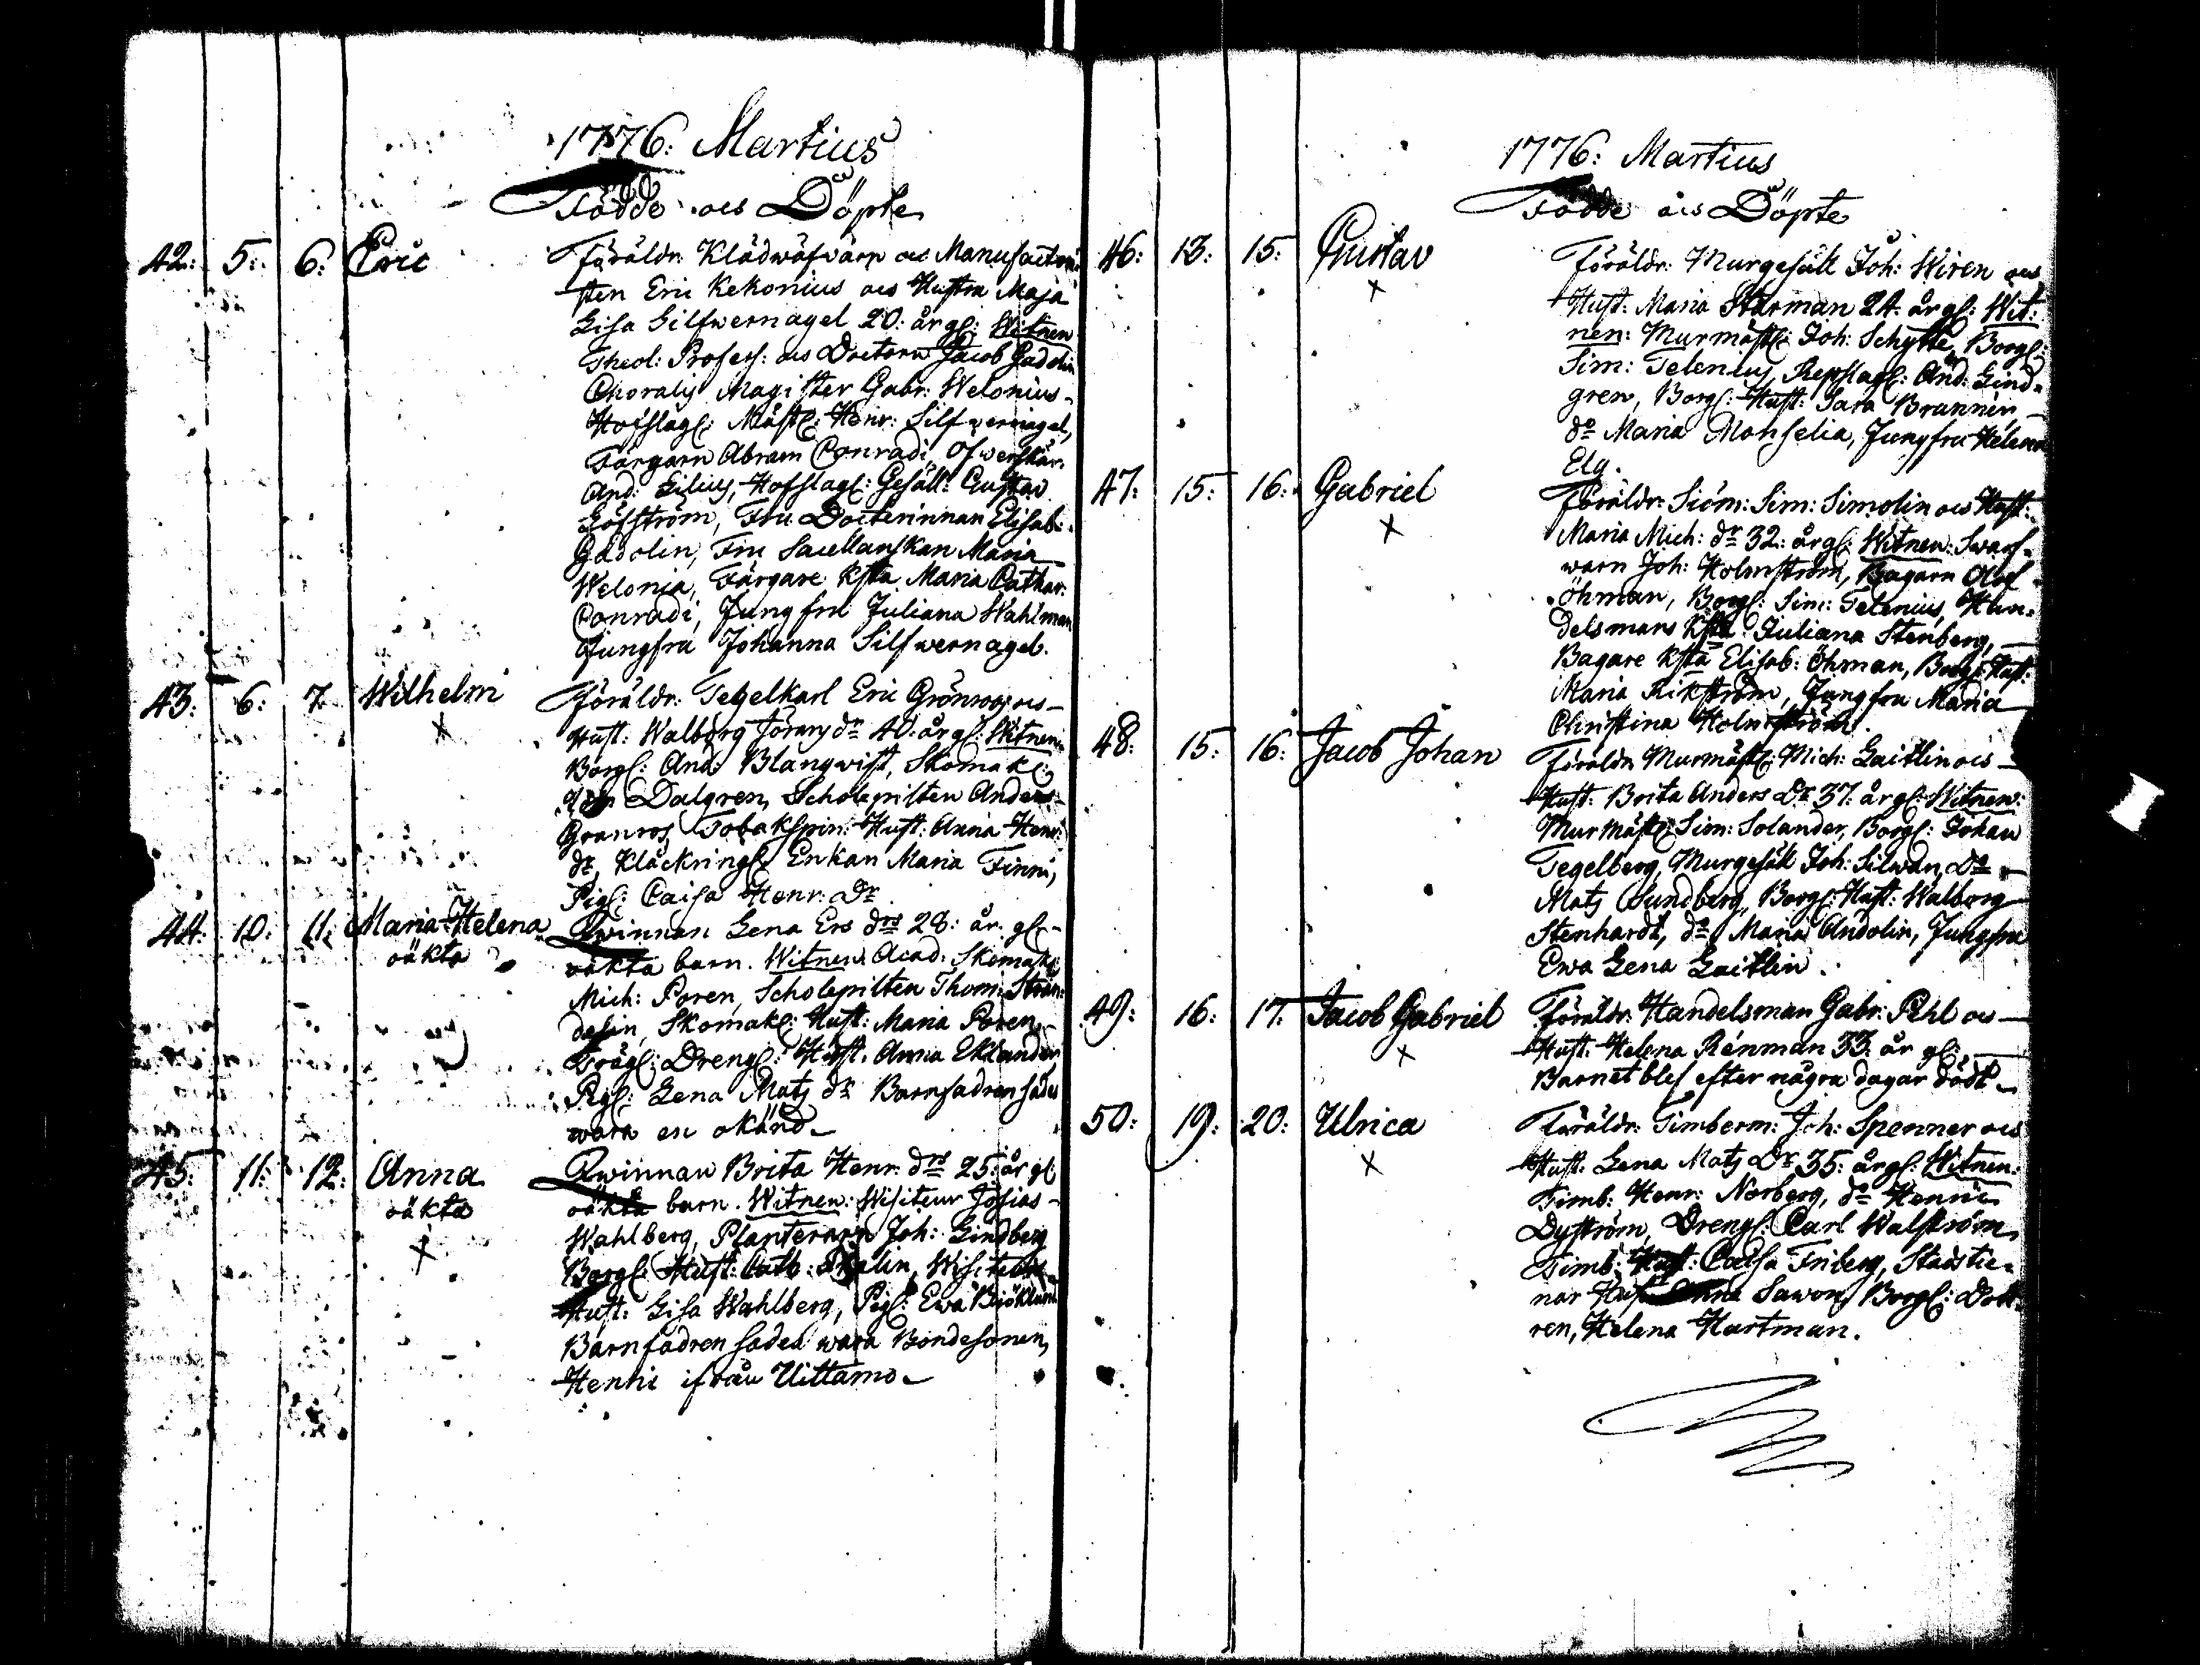 1776. Martius
Födde och Döpte
42: 5: 6: Eric
Föräldr: Klädwäfwaren och Manufactori-
sten Eric Kekonius och Hustru Maja
Lisa Silfwernagel 20: år gl: Witnen
Theol: Profess: och Doctorn Jacob Gadolin
Choralis Magister Gabr: Welonius
Hofslag: Mäst: Henr: Silfwernagel,
Färgarn Abram Conradi, Öfwerskär:
And: Lilius, Hofslag: Gesäll: Gustav
Löfström, Fru Doctorinnan Elisab:
Gadolin, Fru Sacellanskan Maria
Welonia, Färgare k:sta Maria Cathar:
Conradi, Jungfru Juliana Wahlman
Jungfru Johanna Silfwernagel.
43: 6: 7. Wilhelm
x
Föräldr: Tegelkarl Eric Grönroos och
Hust: Walborg Jörans dr 40: år gl: Witnen
Borg: And: Blanqwist, Skomak:
Dalgren, Scholepilten Anders
Granros, Tobakspin: Hust: Anna Henr:
dr, Klåckring: Enkan Maria Finni,
Pig: Caisa Henr: Dr
44: 10: 11: Maria Helena
oäkta
Qwinnan Lena Ers drs 28: år gl-
oäkta barn. Witnen: Acad: Skomak:
Mich: Poren, Scholepilten Thom: Strån-
dalin, Skomak: Hust: Maria Poren
Dreng: Hust: Anna Eklander
Pig: Lena Mats dr Barnfadren sades
wara en okänd
45: 11: 12: Anna
oäkta
x
Qwinnan Brita Henr: drs 25: år gl
oäkta barn. Witnen: Wisiteur Josias
Wahlberg, Planteraren Joh: Lindberg
Borg: Hust: Cath: Wisiteurs
Hust: Lisa Wahlberg, Pig: Ewa Biöklund
Barnfadren sades wara Bondesonen,
Henric ifrån Uittamo
1776: Martius
Födde och Döpte
46: 13: 15: Gustav
x
Föräldr: Murgesäll Joh: Wiren och
Hust: Maria Starman 24: år gl: Wit-
nen: Murmäst: Joh: Schytte, Borg:
Sim: Telenius, Repslag: And: Lind-
gren, Borg: Hust: Sara Brunnin
do Maria Monselia, Jungfru Helena
Elg.
47: 15: 16: Gabriel
x
Föräldr: Siöm: Sim: Simolin och Hust:
Maria Mich: dr 32: år gl: Witnen: Swarf-
waren Joh: Holmström, Bagaren Olof
Öhman, Borg: Sim: Telenius, Han-
delsmans K:sta Juliana Stenberg,
Bagare K:sta Elisab: Öhman, Borg: Hust:
Maria Rikström, Jungfru Maria
Christina Holmström.
48: 15: 16: Jacob Johan
Föräldr: Murmäst: Mich: Laitlin och
Hust: Brita Anders Dr 37: år gl: Witnen:
Murmäst: Sim: Solander, Borg: Johan
Tegelberg, Murgesäll Joh: Silwan, Do
Mats Sundberg, Borg: Hust: Walborg
Stenhardt, do Maria Andolin, Jungfru
Ewa Lena Laitlin.
49: 16: 17: Jacob Gabriel
x
Föräldr: Handelsman Gabr: Pihl och
Hust: Helena Renman 33: år gl:
Barnet blef efter några dagar dödt
50: 19: 20: Ulrica
x
Föräldr: Timberm: Joh: Spenner och
Hust: Lena Mats Dr 35: år gl: Witnen:
Timb: Henr: Norberg, do Henric
Dyström, Dreng: Carl Walström,
Timb: Hust: Caisa Friberg, Stadstie-
nar Hust: Anna Sawon, Borg: Dott-
ren, Helena Hartman.